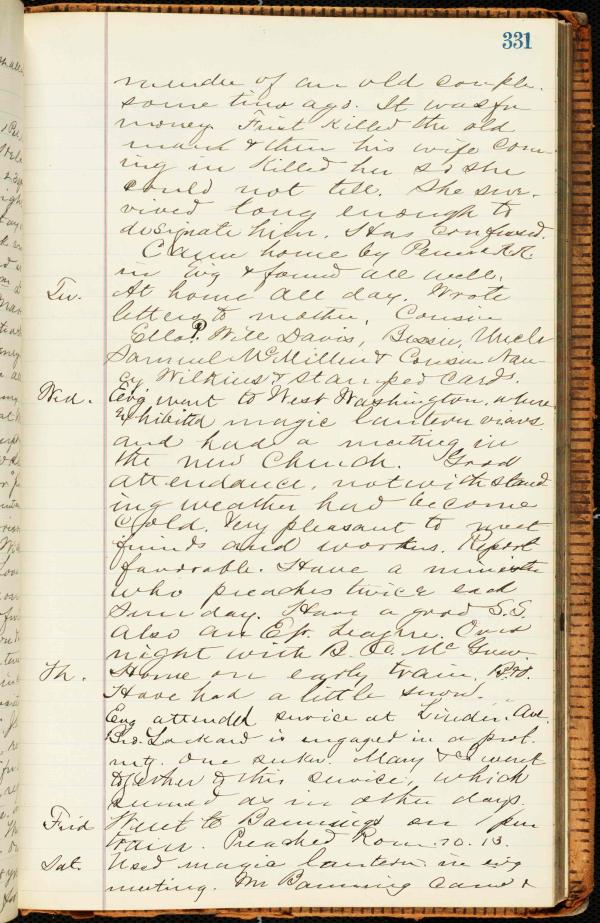 331
murder of an old couple
some time ago. It was for
money. First killed the old
man & then his wife com-
ing in killed her so she
could not tell. She sur-
vived long enough to
designate him. Has confessed.
Came home by Penna R.R.
in Evg & found all well.
Tu. At home all day. Wrote
letters to mother, Cousin
Ella P. Will Davis, Bessie, Uncle
Samuel McMillin & Cousin Nan-
cy Wilkins & stamped cards.
Wed. Evg went to West Washington, where
exhibited magic lantern views
and had a meeting in
the new Church. Good
attendance, notwithstand
ing weather had become
cold. Very pleasant to meet
friends and workers. Report
favorable. Have a minister
who preaches twice each
Sunday. Have a good S.S.
also an Ep. League. Over
night with B. McGrew
Th. Home on early train,
Have had a little snow.
Evg attended service at Linden Ave.
Bro. Lockard is engaged in a prot.
mtg. One seeker. Mary & I went
together to this service, which
seemed as in other days.
Frid Went to Banning on
train. Preached Rom. 10. 13.
Sat. Used magic lantern in evg
meeting. Mr Banning came &